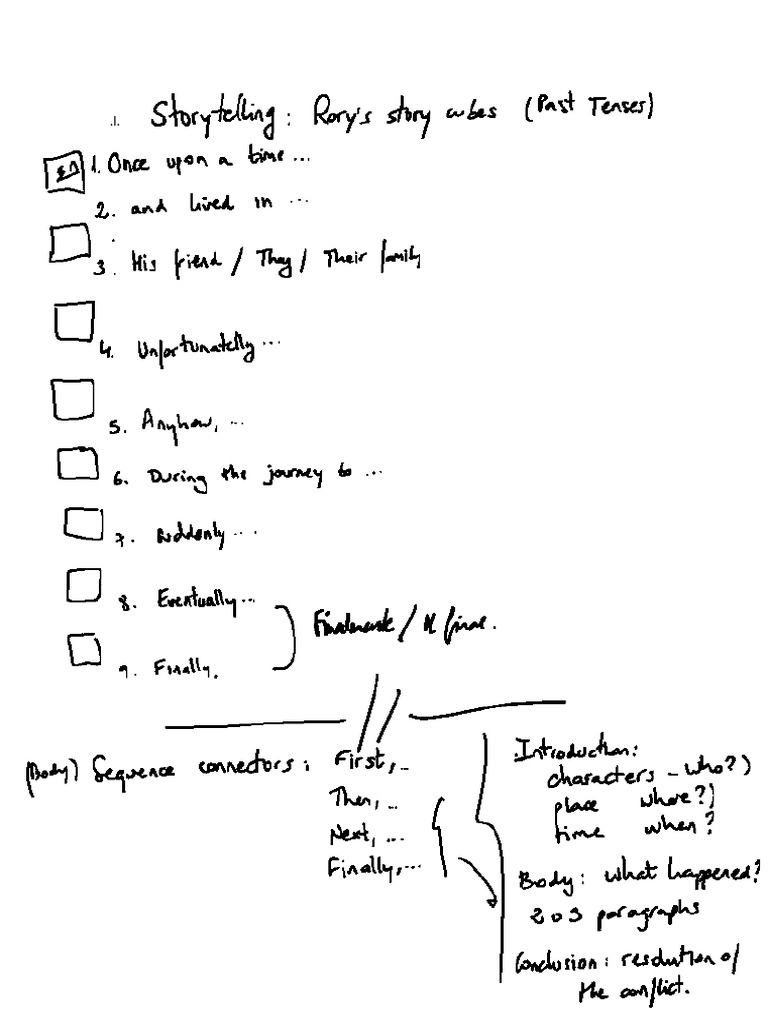 Storytelling: Rory's story cubes (Past Tenses)
1. Once upon a time ...
2. and lived in ...
3. His friend / They / Their family
4. Unfortunatelly ...
5. Anyhow, ...
6. During the journey to ...
7. Suddenly ...
8. Eventually ...
9. Finally.
Finalmente / Al final.
(Body) Sequence connectors:
First, ..
Then, ..
Next, ...
Finally, ...
Introduction:
characters - who?)
place where?)
time when?
Body: what happened?
2 o 3 paragraphs
Conclusion: resolution of
the conflict.